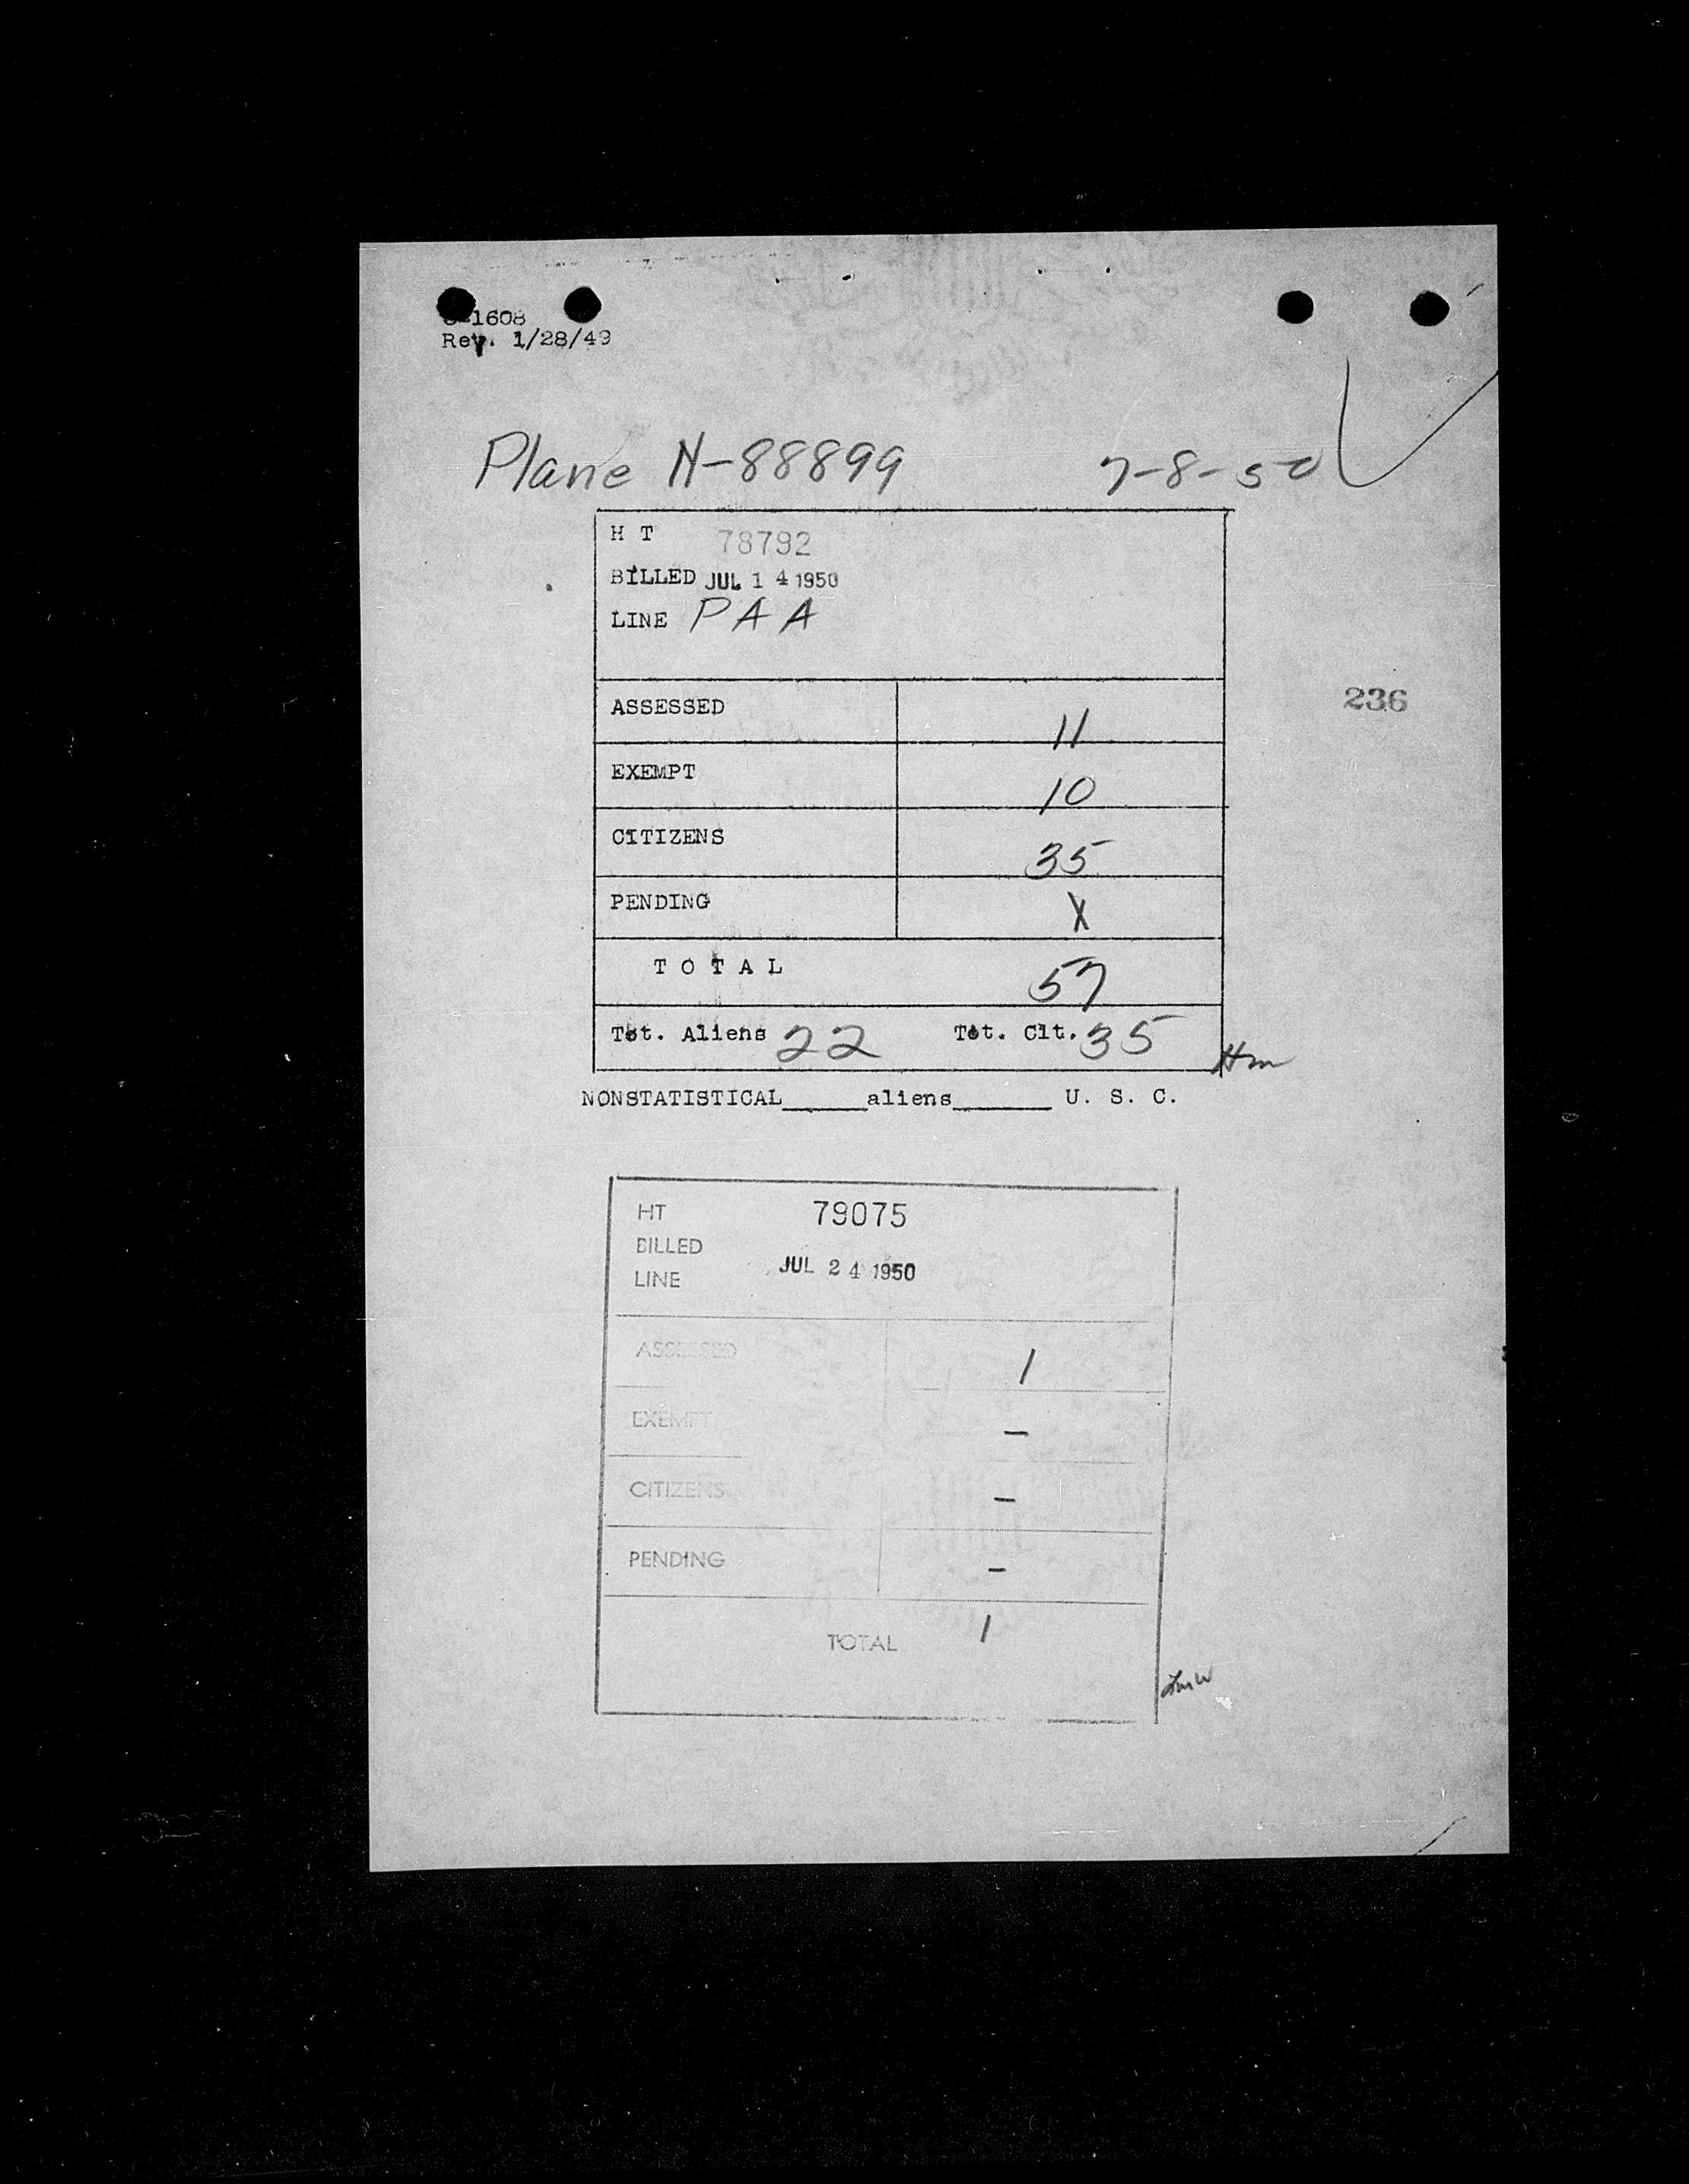 1608
Rev. 1/28/49
Plane N-88899 7-8-50
H T 78792
BILLED JUL 14 1950
LINE PAA
236
ASSESSED 11
EXEMPT 10
CITIZENS 35
PENDING X
T O T A L 57
Tot. Aliens 22 Tot. Cit. 35
NONSTATISTICAL______aliens_______ U. S. C.
HT 79075
BILLED
JUL 24 1950
LINE
ASSESSED 1
EXEMPT —
CITIZENS —
PENDING —
TOTAL 1